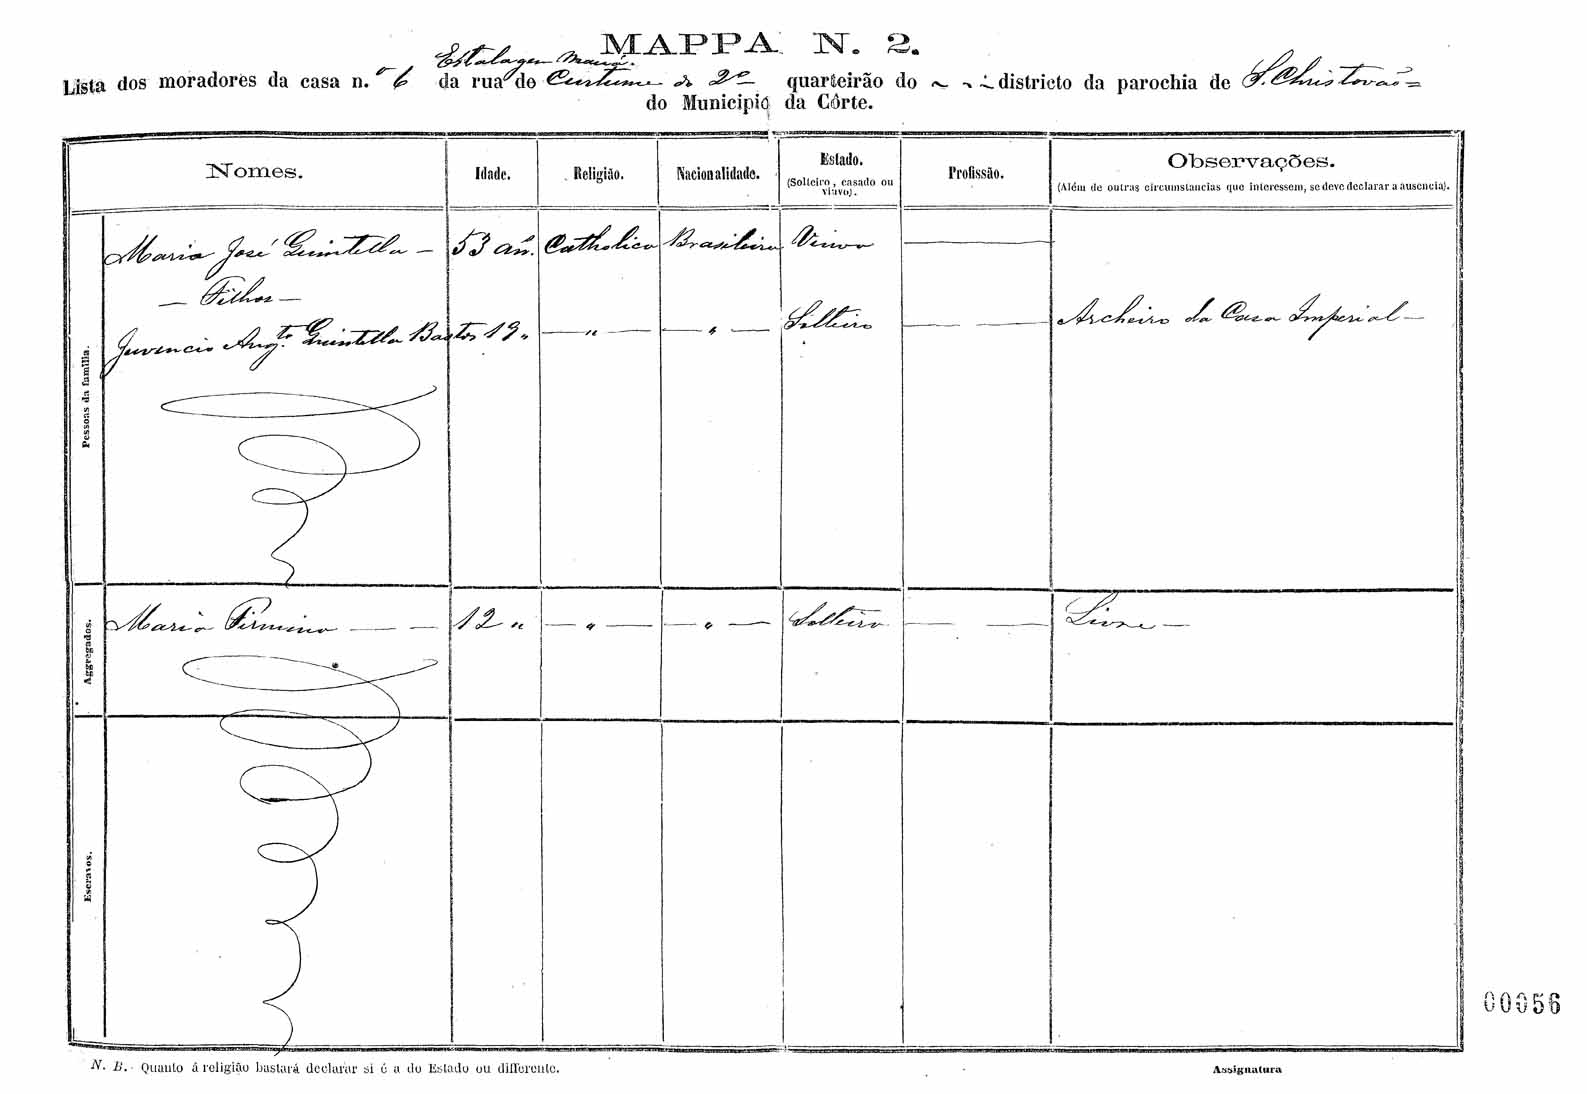 MAPPA N. 2.
Estalagem Mauá.
Lista dos moradores da casa n.º 6 da rua do Curtume do 2º quarteirão do districto da parochia de S. Christovão
do Municipio da Côrte.
Nomes. Idade. Religião. Nacionalidade. Estado. Profissão. Observações.
(Solteiro, casado ou viuvo). (Além de outras circumstancias que interessem, se deve declarar a ausencia).
Pessoas da familia.
Maria José Quintella — 53 an. Catholica Brasileira Viuva —
— Filhos —
Juvencio Augto. Quintella Bastos 19 " — " — — " — Solteiro — — Archeiro da Casa Imperial —
Aggregados.
Maria Firmina — — 12 " — " — — " — Solteira — — Livre —
Escravos.
00056
N. B. Quanto á religião bastará declarar si é a do Estado ou differente.
Assignatura